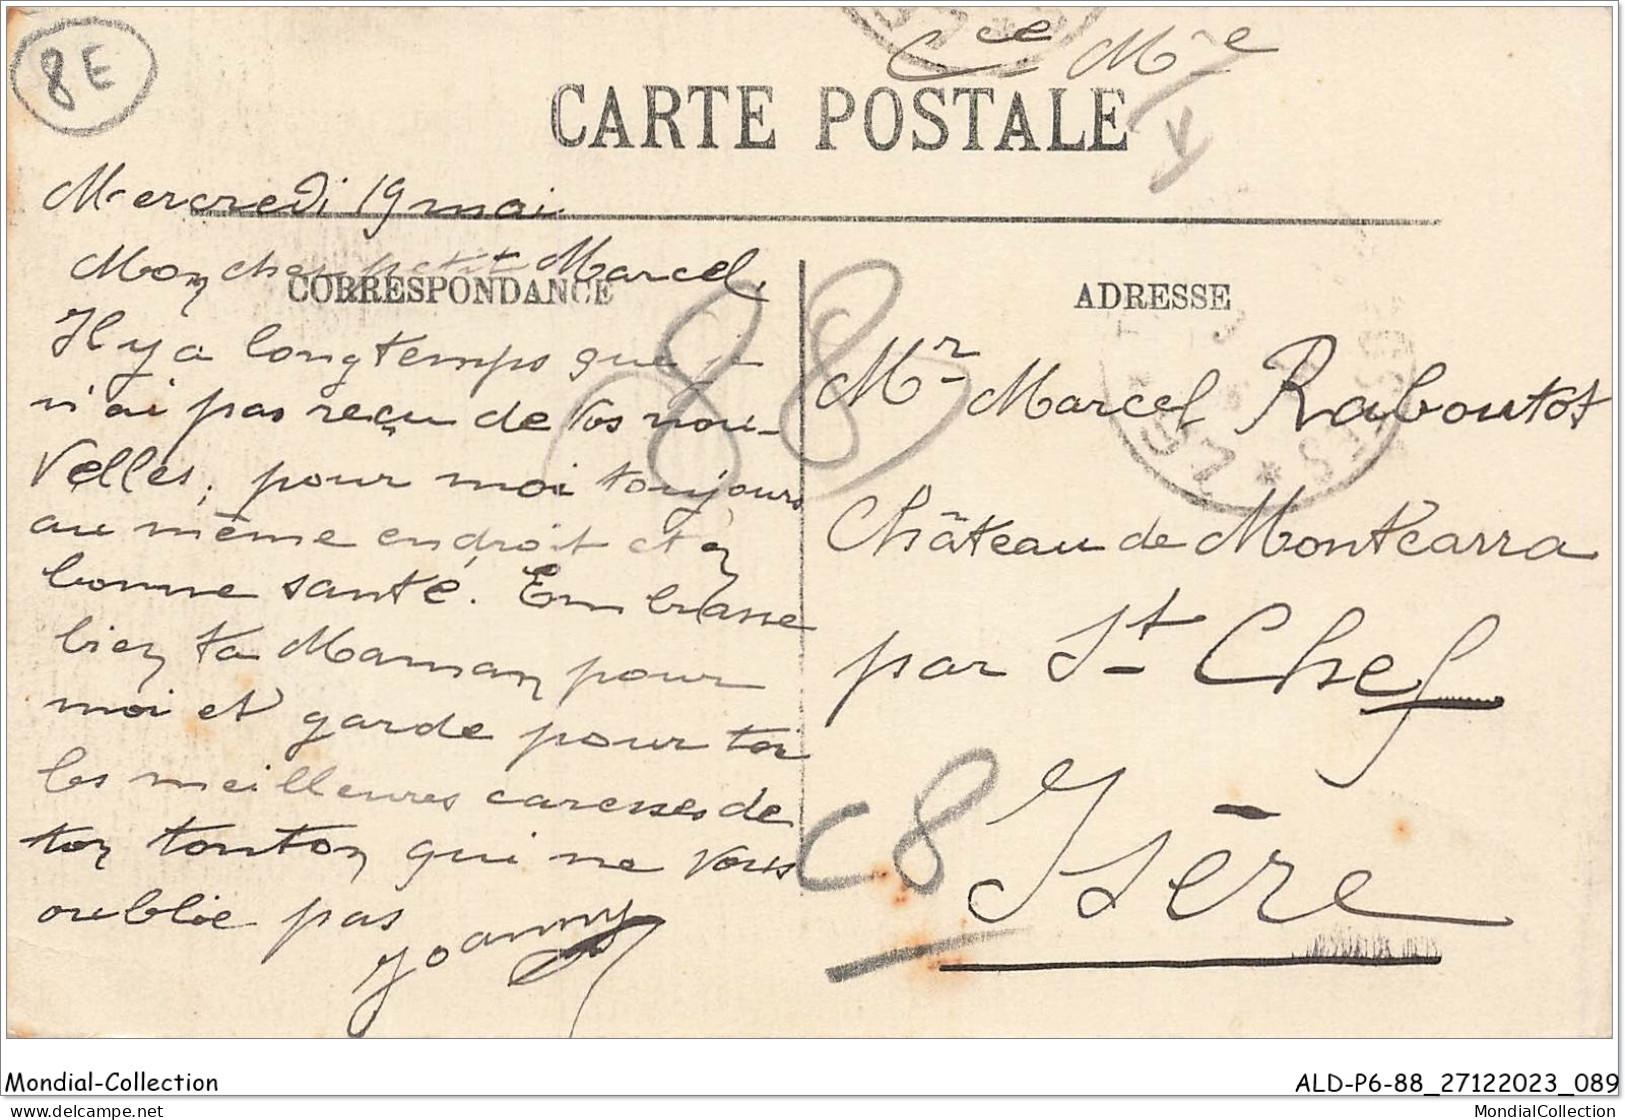 8E
Cce Mle
CARTE POSTALE
Mercredi 19 mai
Mon cher petit Marcel,
CORRESPONDANCE
Il y a longtemps que je
n'ai pas reçu de vos nou-
velles; pour moi toujours
au même endroit et en
bonne santé. Embrasse
bien ta Maman pour
moi et garde pour toi
les meilleures caresses de
ton tonton qui ne vous
oublie pas
Joanny
88
ADRESSE
Mr Marcel Raboutot
Château de Montcarra
par St Chef
C8
Isère
Mondial-Collection
ALD-P6-88_27122023_089
delcampe.net
MondialCollection